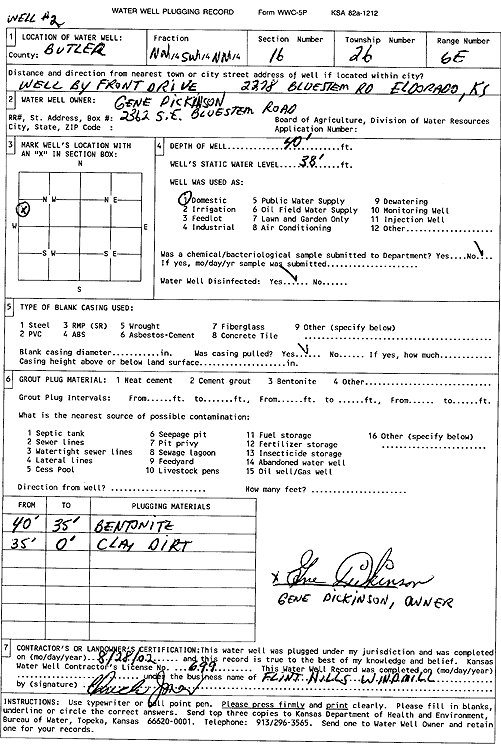 WELL #2
WATER WELL PLUGGING RECORD Form WWC-5P KSA 82a-1212
1 LOCATION OF WATER WELL: Fraction Section Number Township Number Range Number
County: BUTLER NW 1/4 SW 1/4 NW 1/4 16 26 6E
Distance and direction from nearest town or city street address of well if located within city?
WELL BY FRONT DRIVE 2278 BLUESTEM RD ELDORADO, KS
2 WATER WELL OWNER: GENE DICKINSON
RR#, St. Address, Box #: 2362 S.E. BLUESTEM ROAD Board of Agriculture, Division of Water Resources
City, State, ZIP Code : Application Number:
3 MARK WELL'S LOCATION WITH AN "X" IN SECTION BOX:
N
N W N E
X
W E
S W S E
S
4 DEPTH OF WELL....40'....ft.
WELL'S STATIC WATER LEVEL....38'....ft.
WELL WAS USED AS:
1 Domestic 5 Public Water Supply 9 Dewatering
2 Irrigation 6 Oil Field Water Supply 10 Monitoring Well
3 Feedlot 7 Lawn and Garden Only 11 Injection Well
4 Industrial 8 Air Conditioning 12 Other...........
Was a chemical/bacteriological sample submitted to Department? Yes....No....
If yes, mo/day/yr sample was submitted..............
Water Well Disinfected: Yes..... No......
5 TYPE OF BLANK CASING USED:
1 Steel 3 RMP (SR) 5 Wrought 7 Fiberglass 9 Other (specify below)
2 PVC 4 ABS 6 Asbestos-Cement 8 Concrete Tile
Blank casing diameter...........in. Was casing pulled? Yes..... No...... If yes, how much.......
Casing height above or below land surface....................in.
6 GROUT PLUG MATERIAL: 1 Neat cement 2 Cement grout 3 Bentonite 4 Other..................
Grout Plug Intervals: From.....ft. to .....ft., From..... ft. to .....ft., From...... to ......ft.
What is the nearest source of possible contamination:
1 Septic tank 6 Seepage pit 11 Fuel storage 16 Other (specify below)
2 Sewer lines 7 Pit privy 12 Fertilizer storage
3 Watertight sewer lines 8 Sewage lagoon 13 Insecticide storage
4 Lateral lines 9 Feedyard 14 Abandoned water well
5 Cess Pool 10 Livestock pens 15 Oil well/Gas well
Direction from well? .................. How many feet? ..................
FROM TO PLUGGING MATERIALS
40' 35' BENTONITE
35' 0' CLAY DIRT
x Gene Dickinson
GENE DICKINSON, OWNER
7 CONTRACTOR'S OR LANDOWNER'S CERTIFICATION: This water well was plugged under my jurisdiction and was completed
on (mo/day/year)..8/28/02.... and this record is true to the best of my knowledge and belief. Kansas
Water Well Contractor's License No. ...699... This Water Well Record was completed on (mo/day/year)
.................under the business name of FLINT HILLS WINDMILL
by (signature)
INSTRUCTIONS: Use typewriter or ball point pen. Please press firmly and print clearly. Please fill in blanks,
underline or circle the correct answers. Send top three copies to Kansas Department of Health and Environment,
Bureau of Water, Topeka, Kansas 66620-0001. Telephone: 913/296-3565. Send one to Water Well Owner and retain
one for your records.